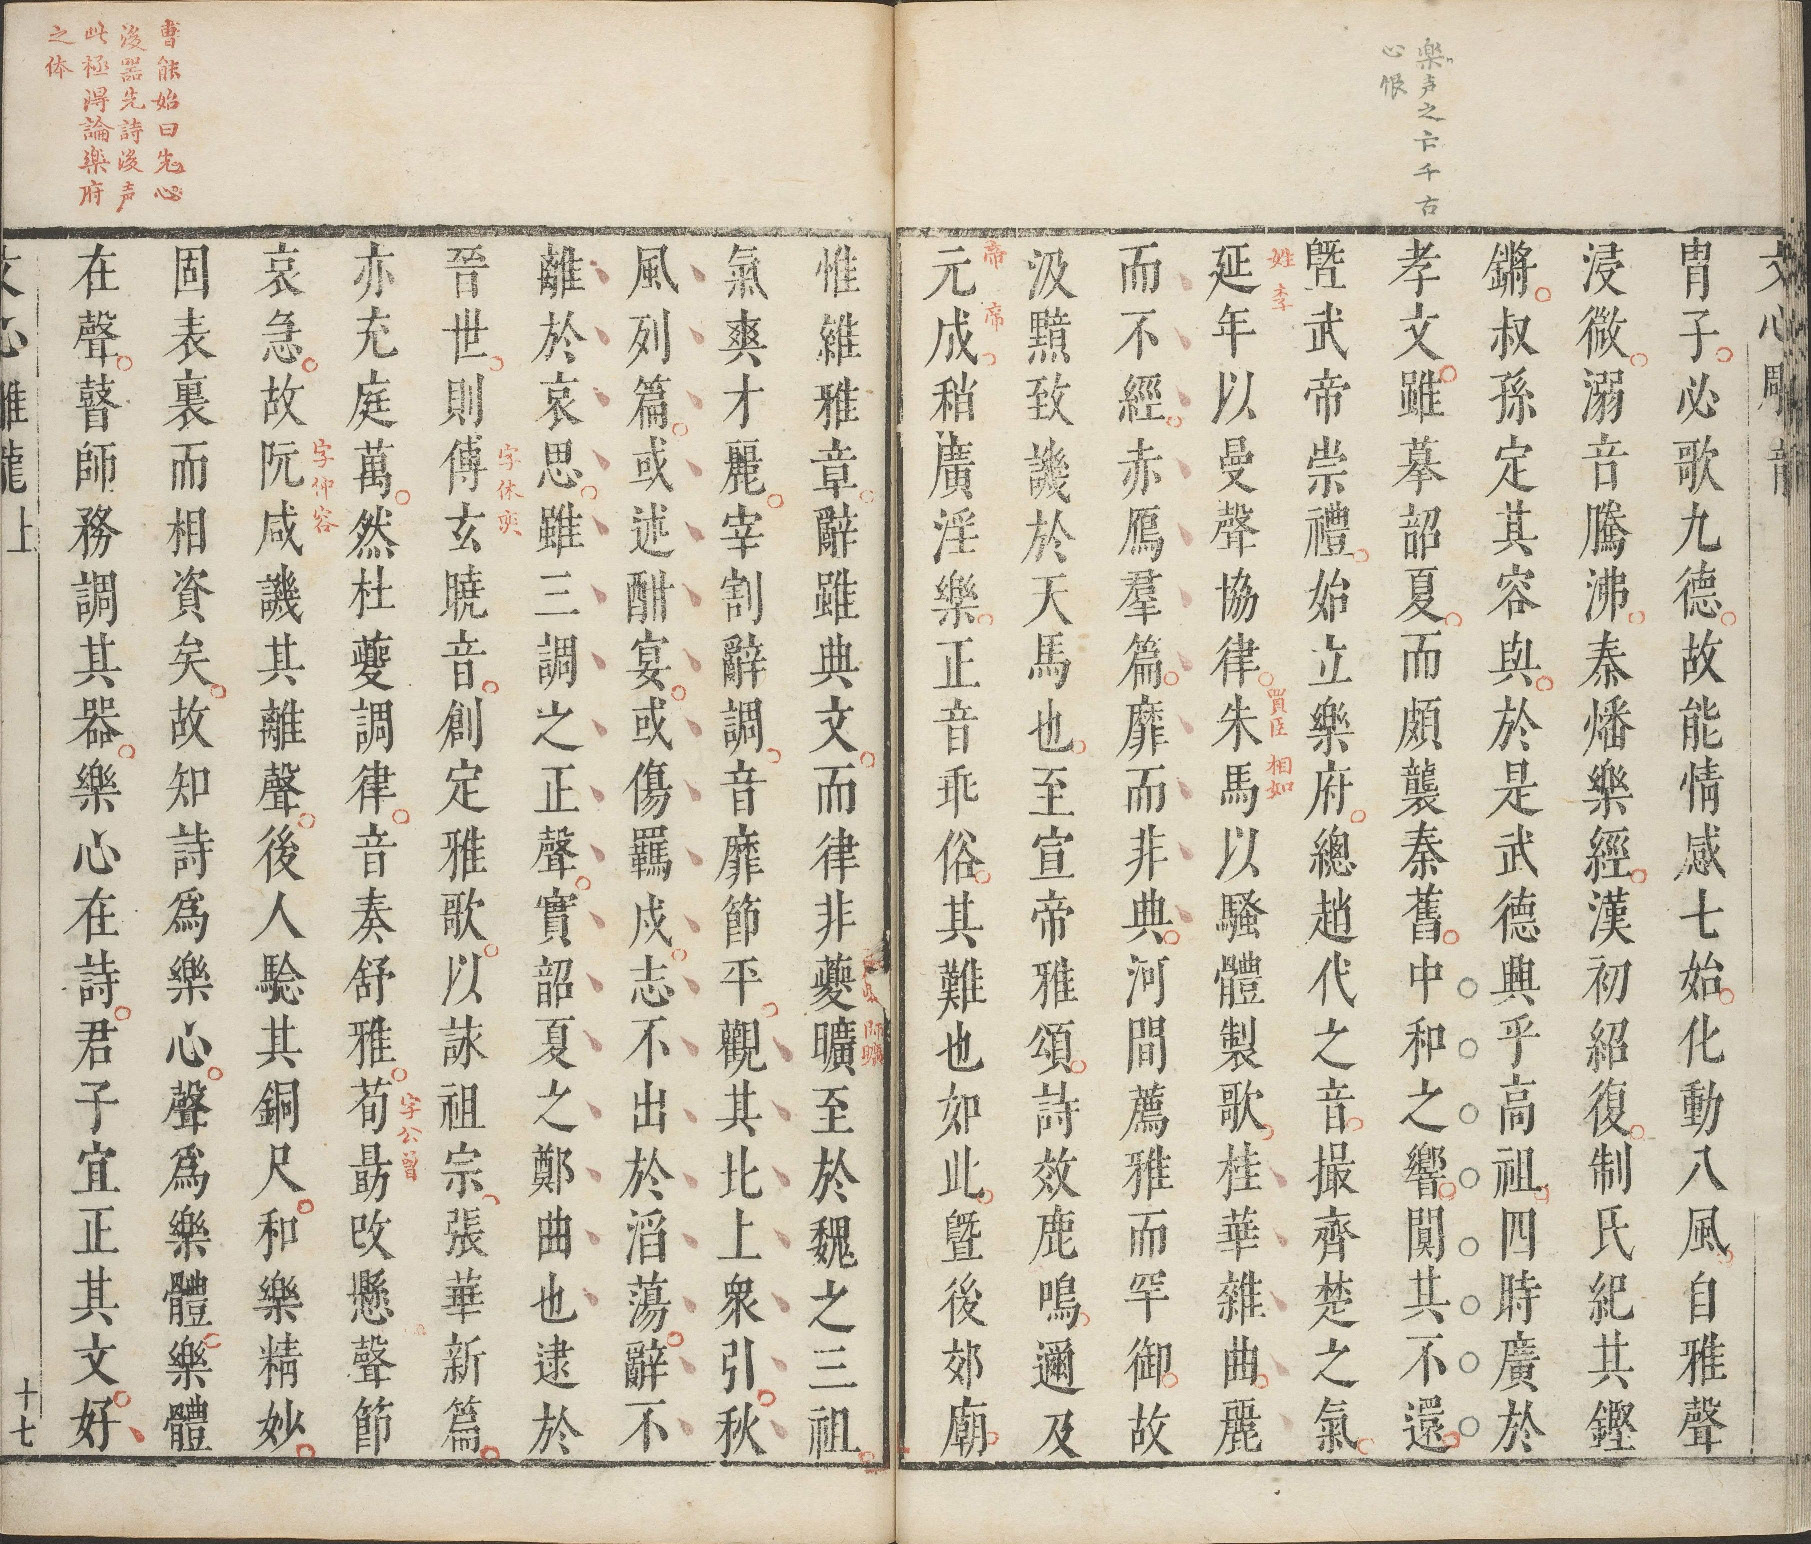 樂声之亡千古
心恨
胄子必歌九德故能情感七始化動八風自雅聲
浸微溺音騰沸秦燔樂經漢初紹復制氏紀其鏗
鏘叔孫定其容與於是武德興乎高祖四時廣於
孝文雖摹韶夏而頗襲秦舊中和之響闃其不還
暨武帝崇禮始立樂府總趙代之音撮齊楚之氣
姓李
延年以曼聲協律朱馬以騷體製歌桂華雜曲麗
買臣 相如
而不經赤鴈羣篇靡而非典河間薦雅而罕御故
汲黯致譏於天馬也至宣帝雅頌詩效鹿鳴邇及
帝 帝
元成稍廣淫樂正音乖俗其難也如此暨後郊廟
惟雜雅章辭雖典文而律非夔曠至於魏之三祖
師曠
氣爽才麗宰割辭調音靡節平觀其北上衆引秋
風列篇或述酣宴或傷羈戍志不出於滔蕩辭不
離於哀思雖三調之正聲實韶夏之鄭曲也逮於
晉世則傅玄曉音創定雅歌以詠祖宗張華新篇
字休奕
亦充庭萬然杜夔調律音奏舒雅荀勗改懸聲節
字公曾
哀急故阮咸譏其離聲後人驗其銅尺和樂精妙
字仲容
固表裏而相資矣故知詩爲樂心聲爲樂體樂體
在聲瞽師務調其器樂心在詩君子宜正其文好
文心雕龍上
十七
曹能始曰先心
後器先詩後声
此極淂論樂府
之体